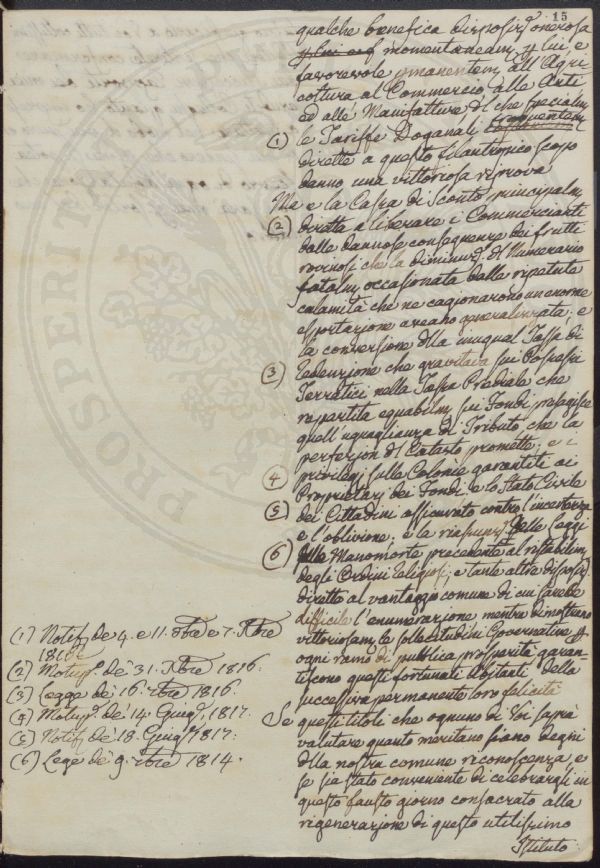 15
qualche benefica disposiz.e onerosa
p lui e p momentaneam, p lui, e
favorevole pmanentem, all'Agri
coltura al Commercio alle Arti
ed alle Manifatture di che specialm,
(1) le Tariffe Doganali
dirette a questo filantropico scopo
danno una vittoriosa riprova
Ma e la Cassa di Sconto principalm,
(2) diretta a liberare i Commercianti
dalle dannose conseguenze dei frutti
rovinosi che la diminuz.e di Numerario
fatalm, occasionata dalle ripetute
calamità che ne cagionarono un enorme
esportazione aveano generalizzata; e
la conversione della inugual Tassa di
(3) Redenzione che gravitava sui Possessi
Terratici nella Tassa Prediale che
repartita equabilm, sui Fondi presagisce
quell'uguaglianza di Tributo, che la
perfezion del Catasto promette; e i
(4) privilegj sulle Colonie garantiti ai
Proprietarj dei Fondi: e lo Stato Civile
(5) dei Cittadini assicurato contro l'incertezza
e l'oblivione; e la riassunz.e delle Leggi
(6) delle Manomorte precedente al ristabilim,
degli Ordini religiosi; e tante altre disposiz.
dirette al vantaggio comune di cui sarebbe
difficile l'enumerazione mentre dimostrano
vittoriosam, le sollecitudini Governative p
ogni ramo di pubblica prosperità garan-
tiscono questi fortunati Abitanti della
successiva permanente loro felicità
Se questi titoli che ognuno di Voi saprà
valutare quanto meritano siano degni
della nostra comune riconoscenza, e
se sia stato conveniente di celebrargli in
questo fausto giorno consacrato alla
rigenerazione di questo utilissimo
Istituto:
(1) Notif. de 4. e 11. 8bre e 7. Xbre
1816
(2) Motup.o de' 31. Xbre 1816.
(3) Legge de' 16. 7bre 1816.
(4) Motup.o de' 14. Giug.o, 1817.
(5) Notif. de' 18. Giug.o 1817:
(6) Lege de' 9. 7bre 1814.
PROSPERITÀ